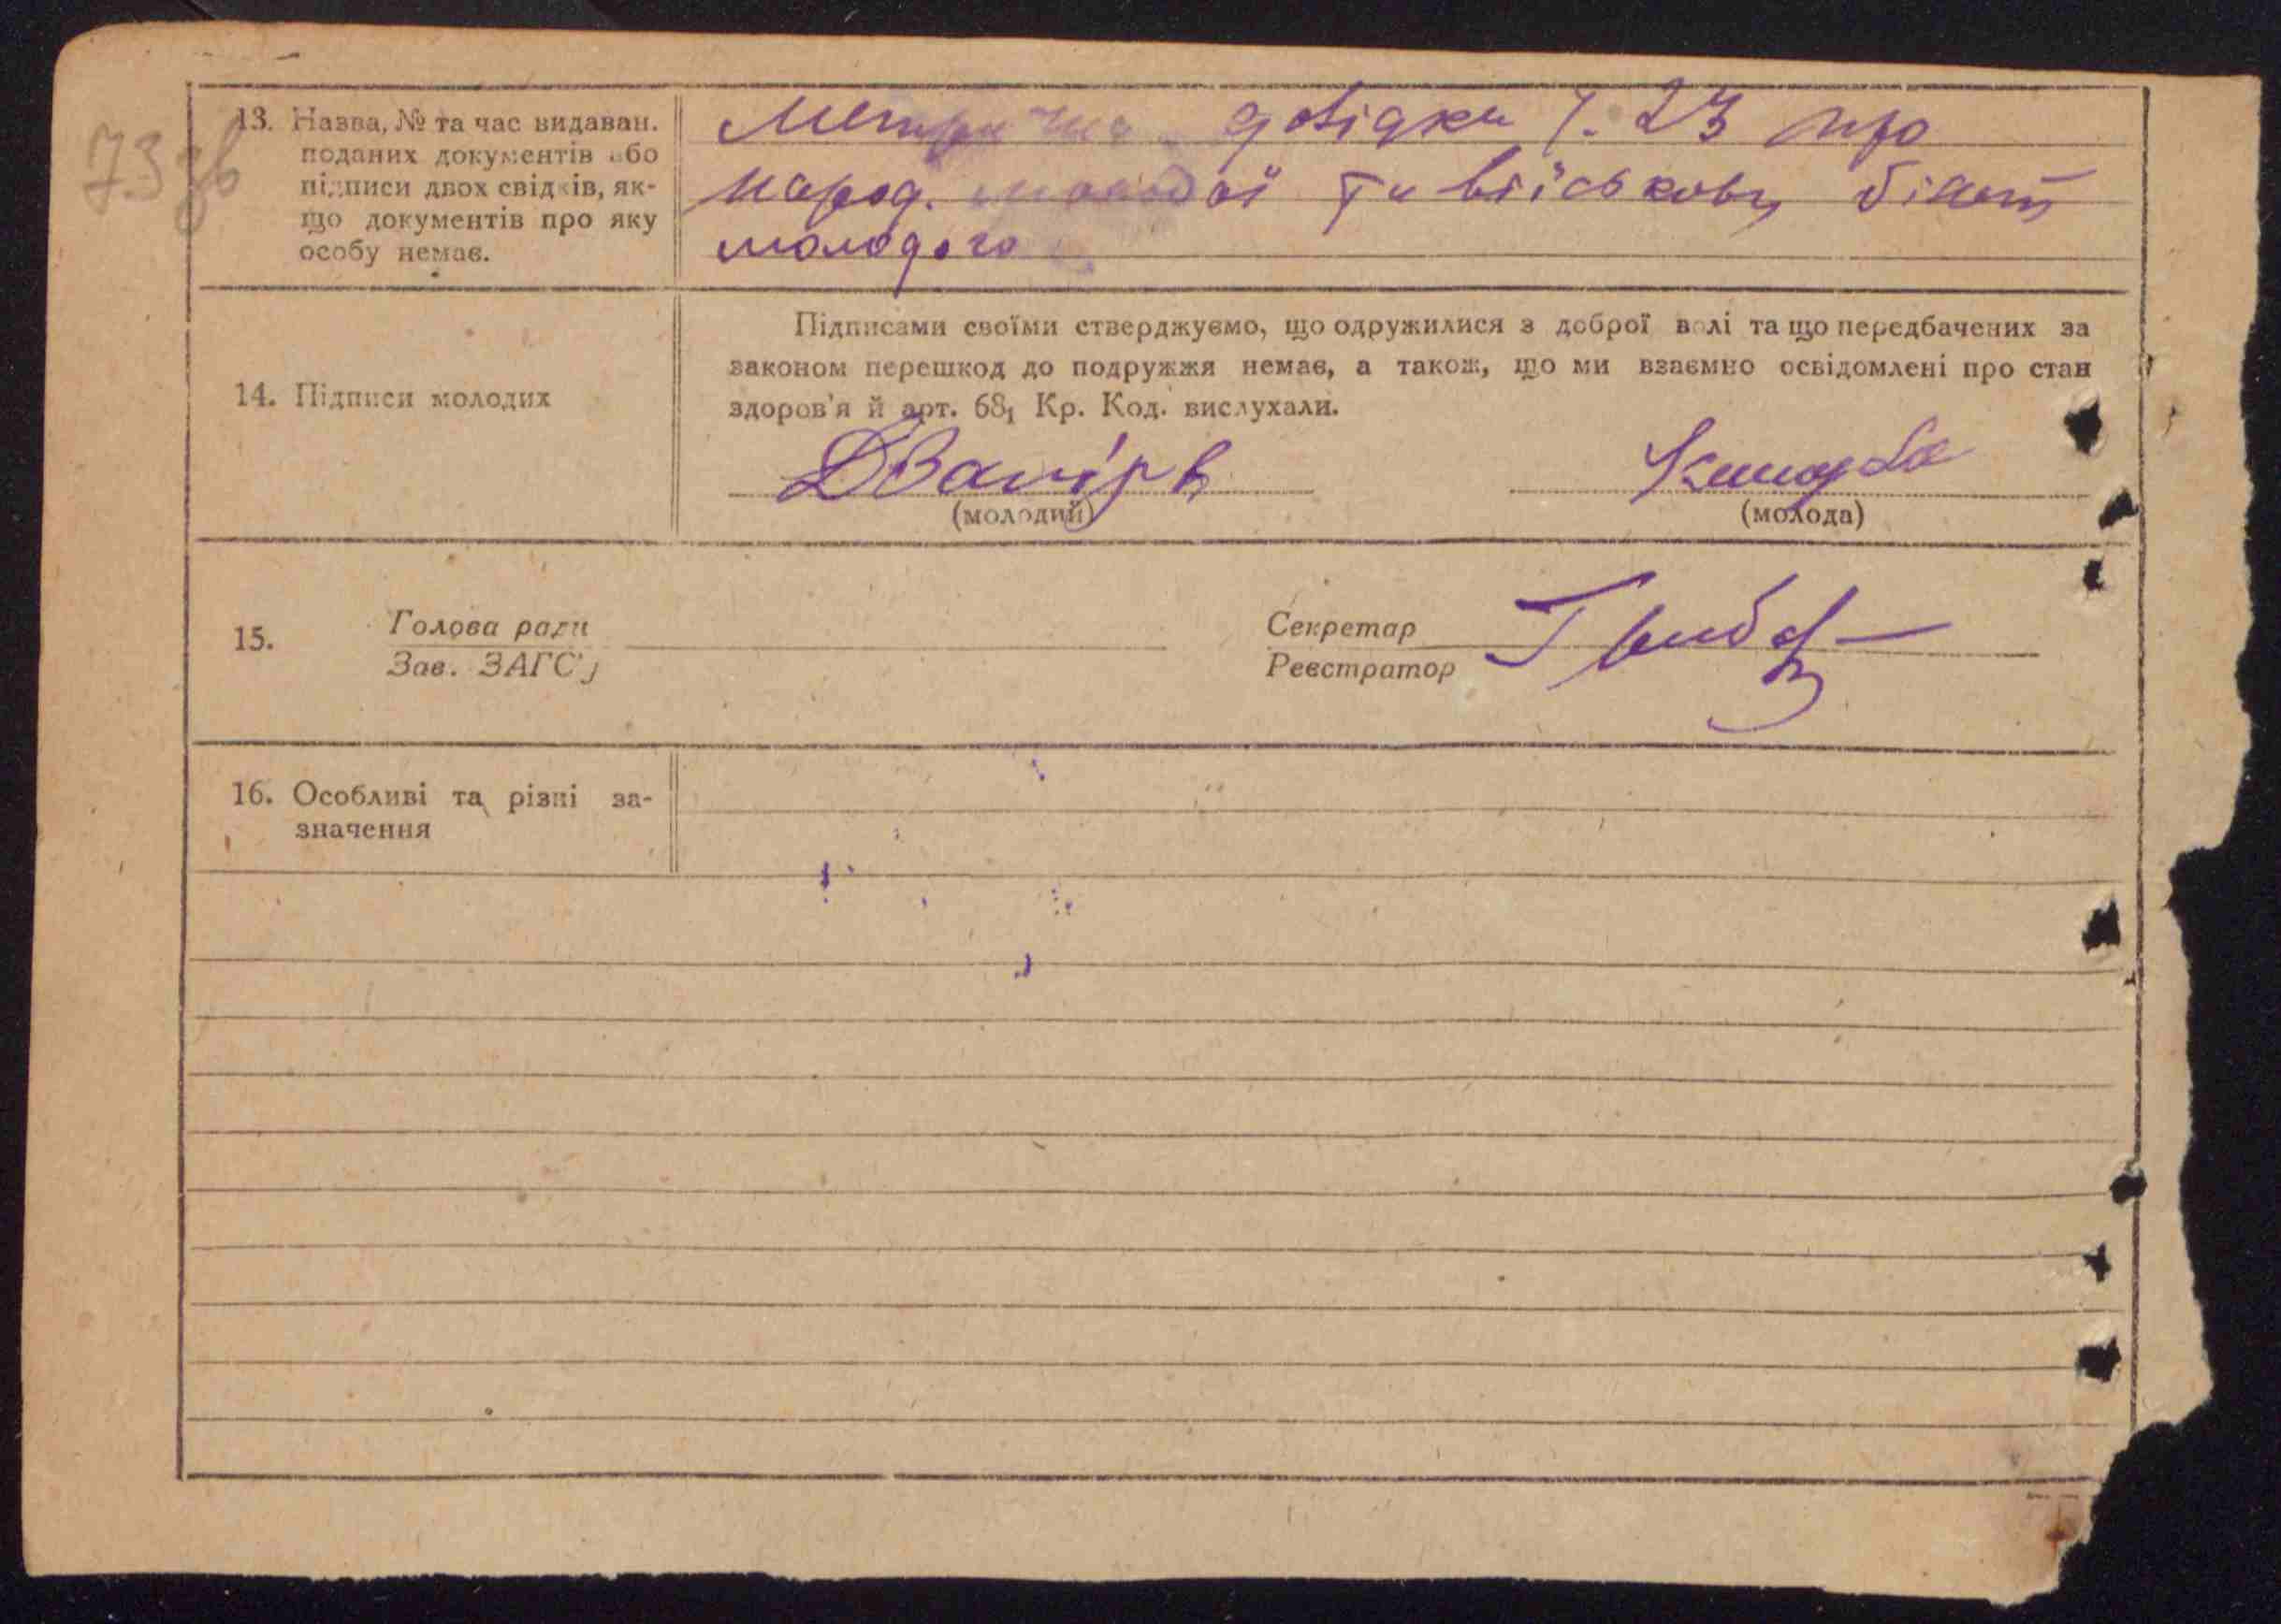 73 зв
13. Назва, № та час видаван.
поданих документів або
підписи двох свідків, як-
що документів про яку
особу немає.
Метрична довідки ч. 23 про
народ. молодої та військовий білет
молодого
14. Підписи молодих
Підписами своїми стверджуємо, що одружилися з доброї волі та що передбачених за
законом перешкод до подружжя немає, а також, що ми взаємно освідомлені про стан
здоров'я й арт. 68₁ Кр. Код. вислухали.
(молодий)
(молода)
15.
Голова ради
Зав. ЗАГС'у
Секретар
Реєстратор
16. Особливі та різні за-
значення